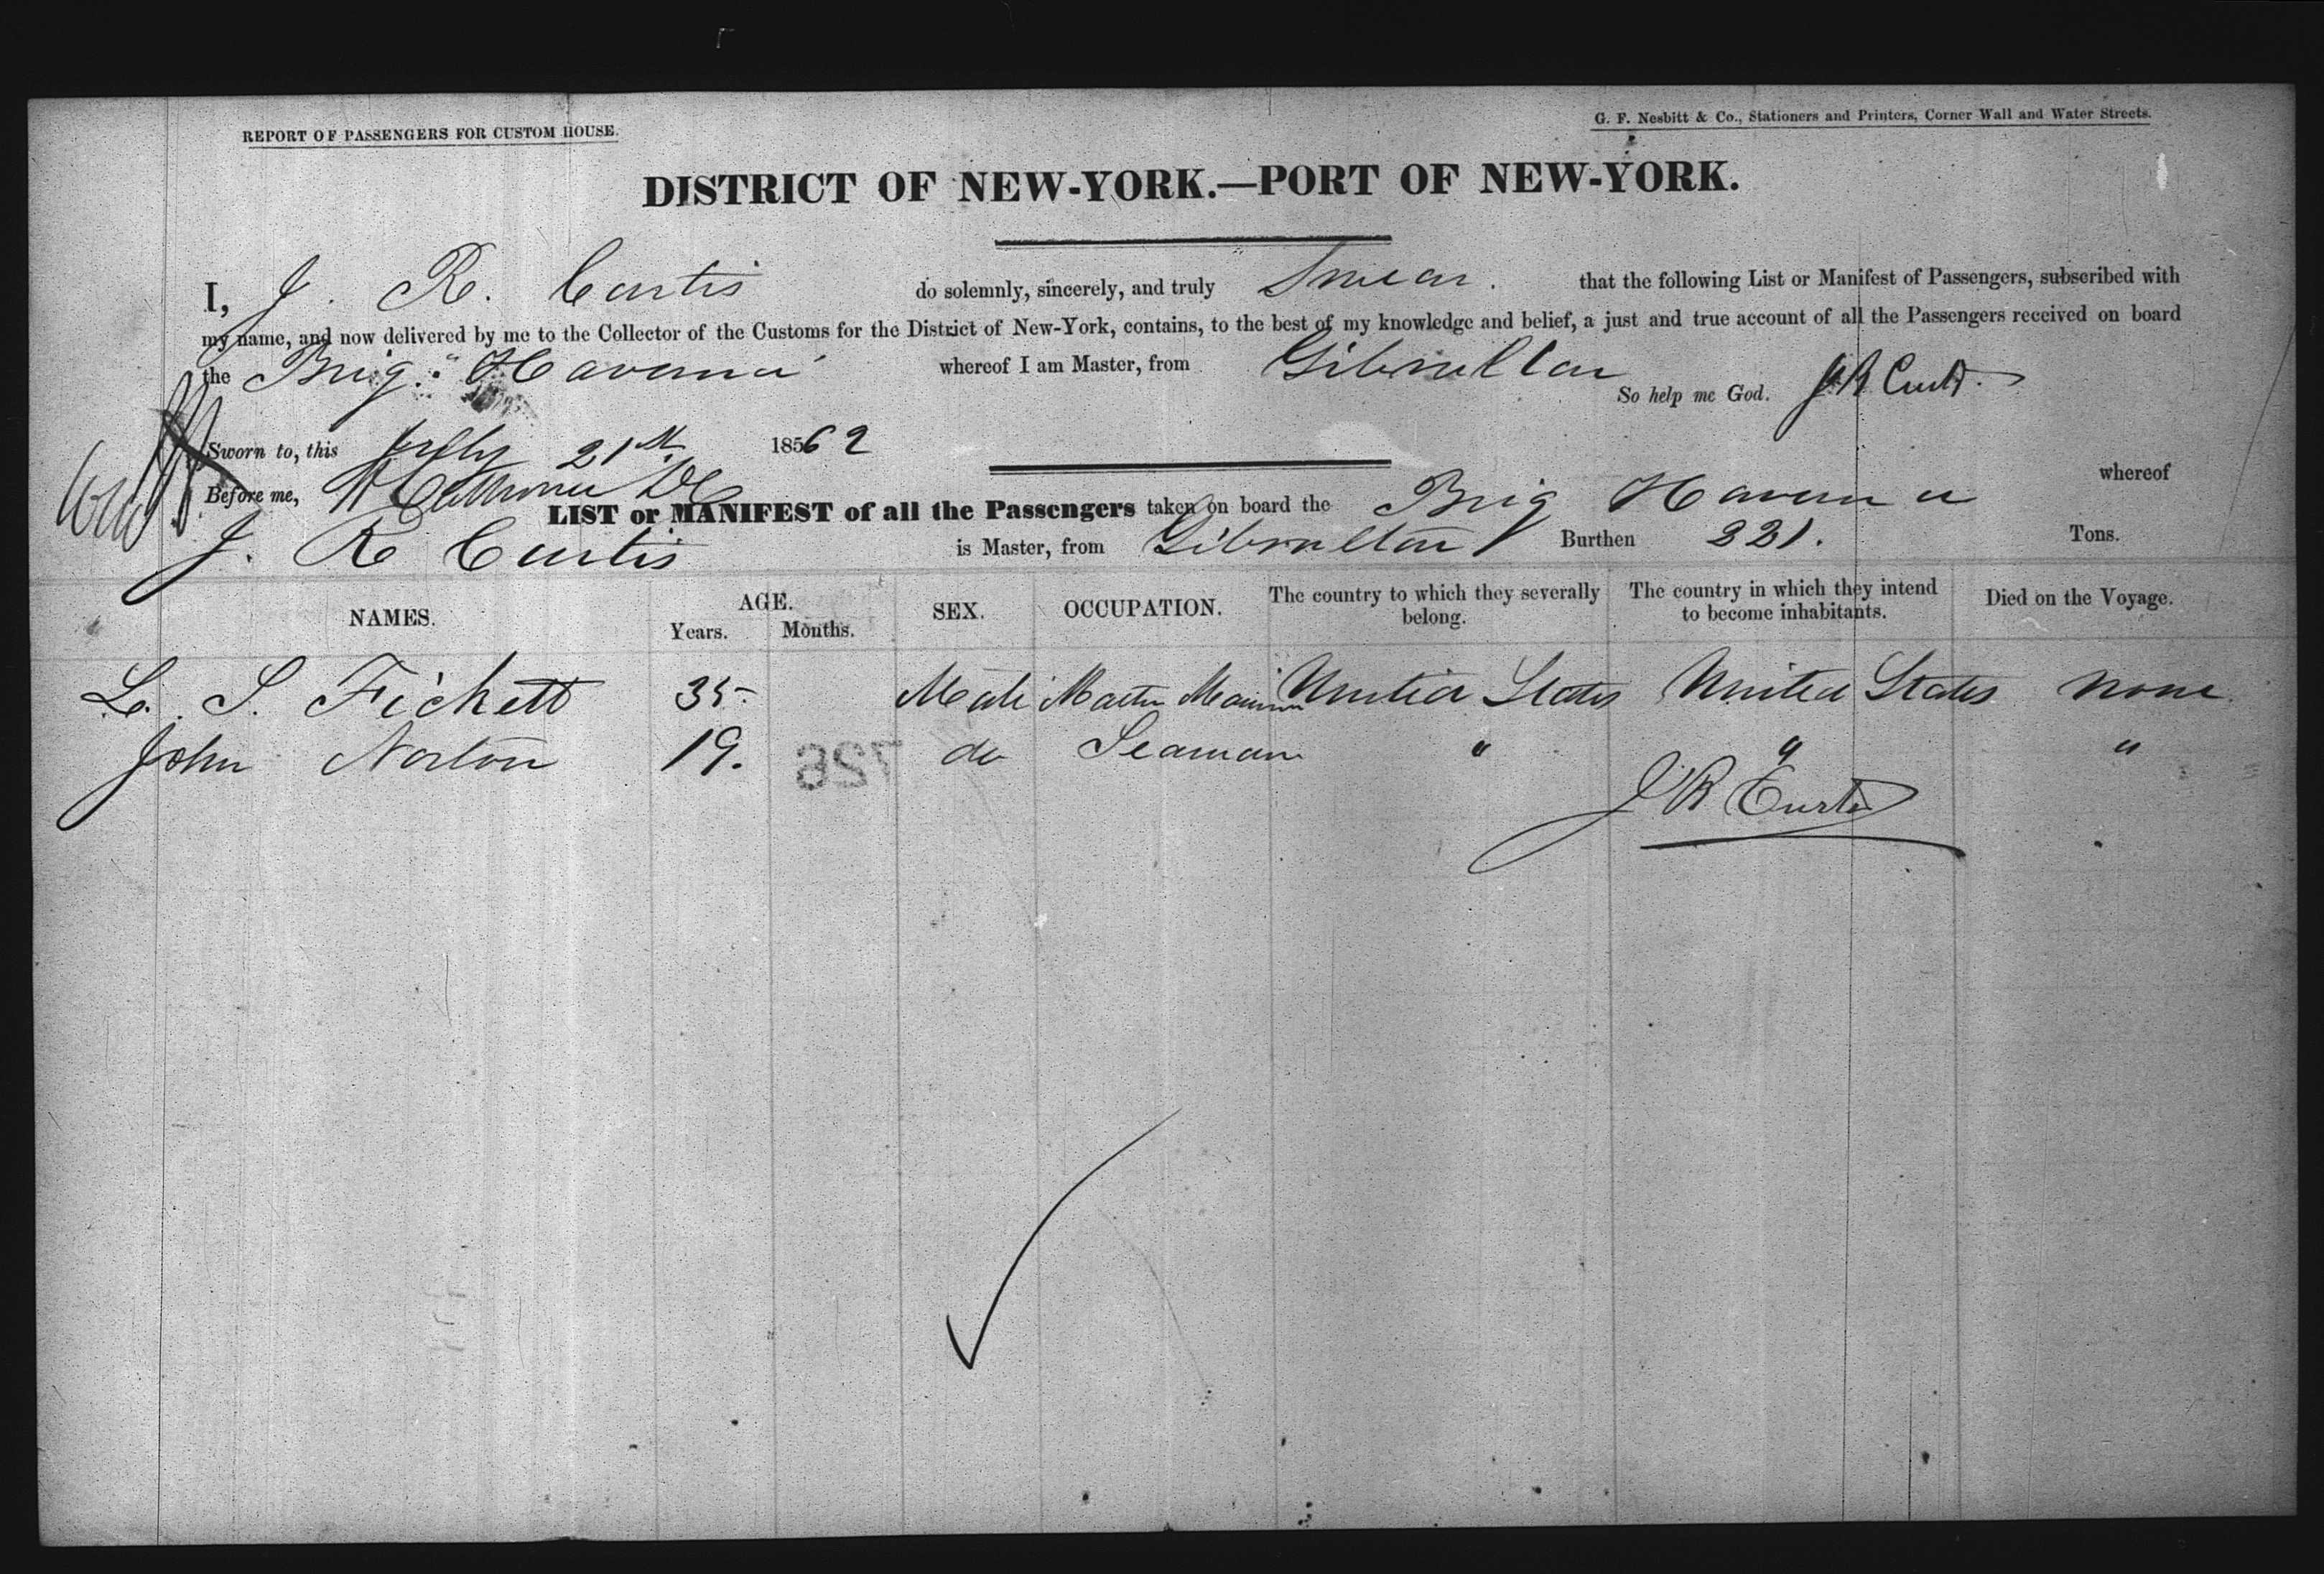 REPORT OF PASSENGERS FOR CUSTOM HOUSE.
G. F. Nesbitt & Co., Stationers and Printers, Corner Wall and Water Streets.
DISTRICT OF NEW-YORK.—PORT OF NEW-YORK.
I, J. R. Curtis do solemnly, sincerely, and truly Swear. that the following List or Manifest of Passengers, subscribed with
my name, and now delivered by me to the Collector of the Customs for the District of New-York, contains, to the best of my knowledge and belief, a just and true account of all the Passengers received on board
the Brig "Havana" whereof I am Master, from Gibraltar
So help me God. J R Curtis
Sworn to, this July 21st 18562
Before me,
LIST or MANIFEST of all the Passengers taken on board the Brig Havana whereof
J. R Curtis is Master, from Gibraltar Burthen 221. Tons.
NAMES. AGE. Years. Months. SEX. OCCUPATION. The country to which they severally belong. The country in which they intend to become inhabitants. Died on the Voyage.
L. S. Fickett 35 Male Master Mariner United States United States None
John Norton 19. do Seaman " " "
726
J R Curtis